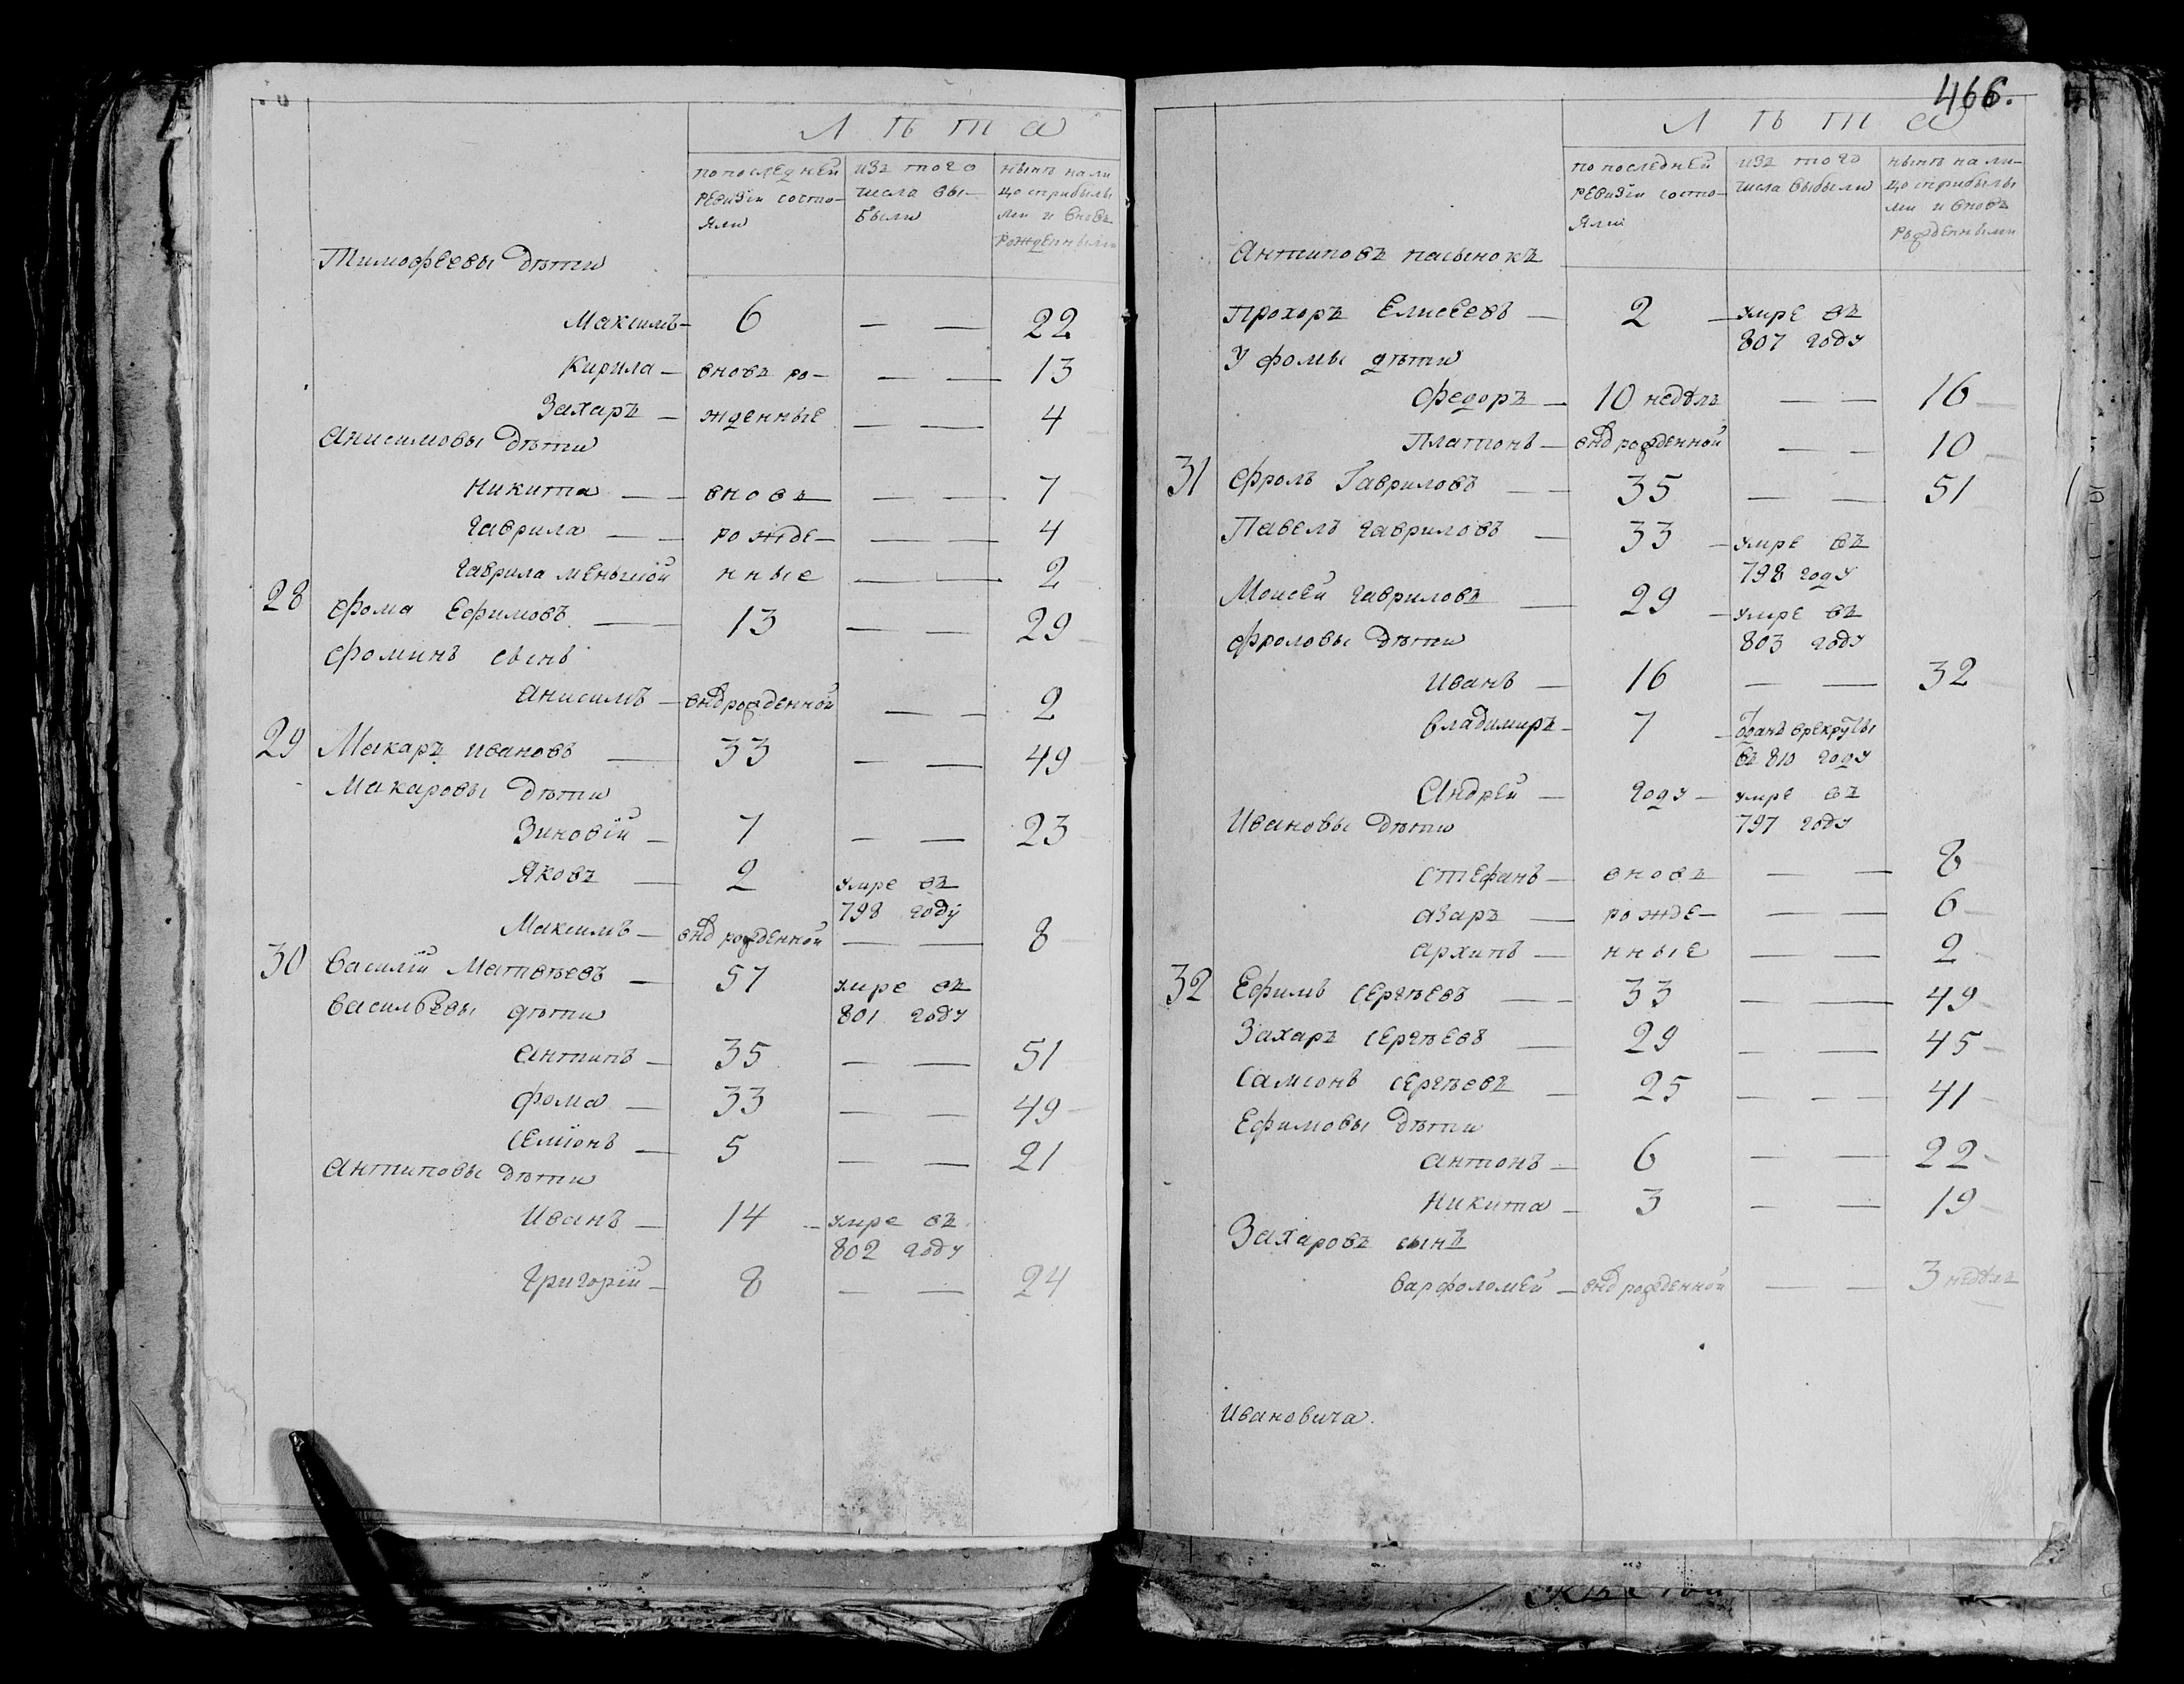 Лѣта
по последней ревизiи состо-яли
изъ того числа вы-были
нынѣ на ли-цо сприбылы-ми и вновь рожденными
Тимофеевы дѣти
Максимъ - 6 — — 22
Кирила - вновь ро- — — 13
Захаръ - жденные — — 4
Анисимовы дѣти
Никита — - вновь — — 7
Гаврила — - рожде- — — 4
Гаврила меньшой нные — — 2
28 Фома Ефимовъ — 13 — — 29
Фоминъ сынъ
Анисимъ - внов рожденной — — 2
29 Макаръ Ивановъ — 33 — — 49
Макаровы дѣти
Зиновiй - 7 — — 23
Яковъ — 2 умре въ
798 году
Максимъ - внов рожденной — — 8
30 Василiй Матвѣевъ — 57 умре въ
Васильевы дѣти 801 году
Антипъ - 35 — — 51
Фома — 33 — — 49
Семiонъ — 5 — — 21
Антиповы дѣти
Иванъ - 14 - умре въ
802 году
Григорiй - 8 — — 24
466.
Лѣта
по последней ревизiи состо-яли
изъ того числа выбыли
нынѣ на ли-цо сприбылы-ми и вновь рожденными
Антиповъ пасынокъ
Прохоръ Елисеевъ — 2 — умре въ
807 году
У Фомы дѣти
Федоръ - 10 недѣль — — 16
Платонъ - внов рожденной — — 10
31 Фролъ Гавриловъ — 35 — — 51
Павелъ Гавриловъ — 33 - умре въ
798 году
Моисей Гавриловъ — 29 - умре въ
Фроловы дѣти 803 году
Иванъ — 16 — — 32
Владимиръ - 7 - отданъ врекруты
въ 810 году
Андрей — году - умре въ
Ивановы дѣти 797 году
Стефанъ - вновь — — 8
Азаръ — рожде- — — 6
Архипъ — нные — — 2
32 Ефимъ Сергѣевъ — 33 — — 49
Захаръ Сергѣевъ — 29 — — 45
Самсонъ Сергѣевъ — 25 — — 41
Ефимовы дѣти
Антонъ - 6 — — 22
Никита - 3 — — 19
Захаровъ сынъ
Варфоломей - внов рожденной — — 3 недѣль
Ивановича.